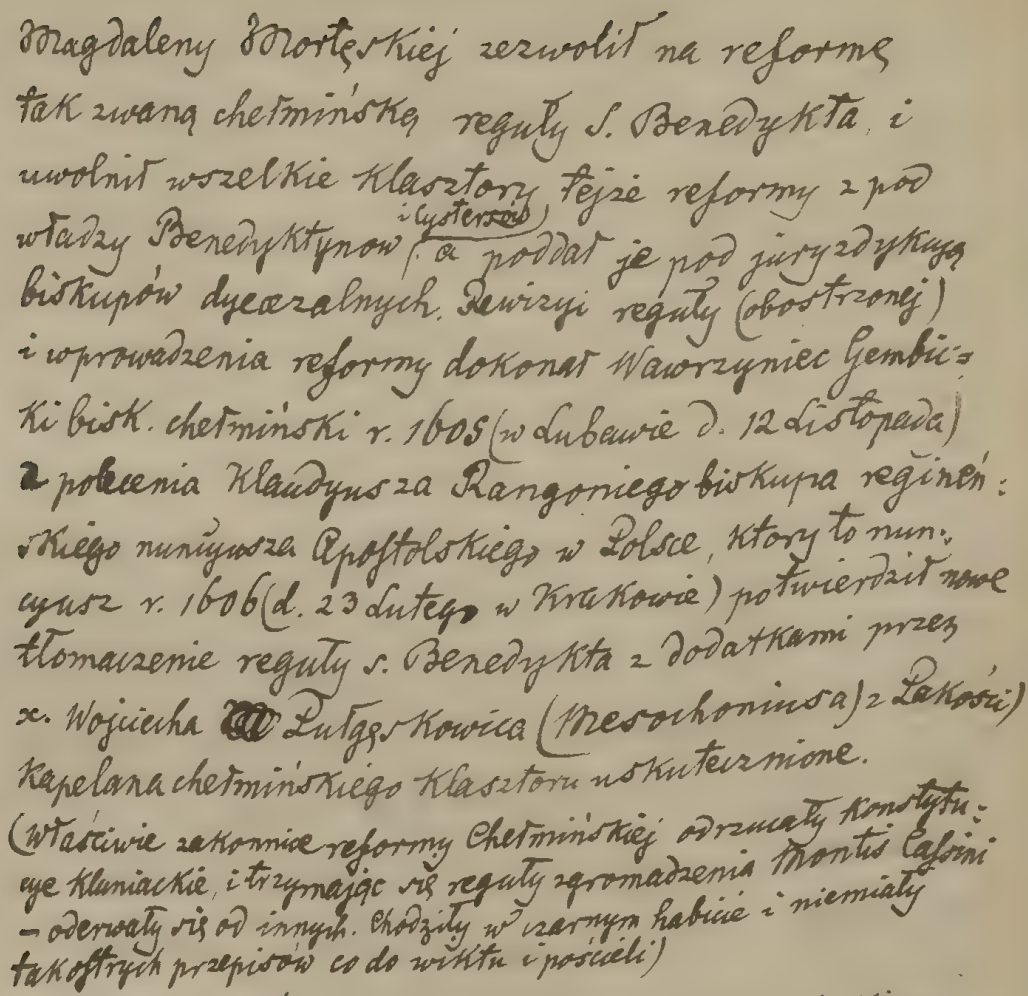 Magdaleny Mortęskiej zezwolił na reformę
tak zwaną chełmińską reguły S. Benedykta, i
uwolnił wszelkie Klasztory tejże reformy z pod
i Cystersów
władzy Benedyktynow, a poddał je pod juryzdykcyą
biskupów dyecezalnych. Rewizyi reguły (obostrzonej)
i wprowadzenia reformy dokonał Wawrzyniec Gembic-
ki bisk. chełmiński r. 1605 (w Lubawie d. 12 Listopada)
z polecenia Klaudyusza Rangoniego biskupa regineń-
skiego nuncyusza Apostolskiego w Polsce, który to nun-
cyusz r. 1606 (d. 23 Lutego w Krakowie) potwierdził nowe
tłomaczenie reguły s. Benedykta z dodatkami przez
x. Wojciecha Półgęskowica (Mesochoniusa) z Pakości)
kapelana chełmińskiego Klasztoru uskutecznione.
(Właściwie zakonnice reformy Chełmińskiej odrzucały Konstytu-
cye Kluniackie, i trzymając się reguły zgromadzenia Montis Cassini
– oderwały się od innych. Chodziły w czarnym habicie i niemiały
tak ostrych przepisów co do wiktu i pościeli)